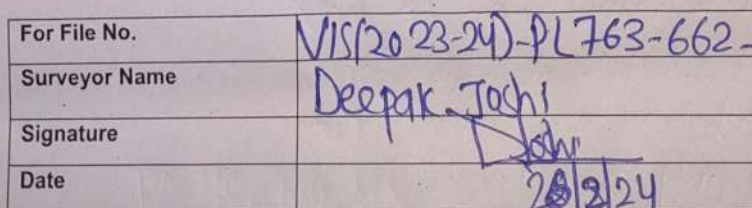 For File No. VIS(2023-24)-PL763-662-
Surveyor Name Deepak Joshi
Signature Joshi
Date 28/2/24